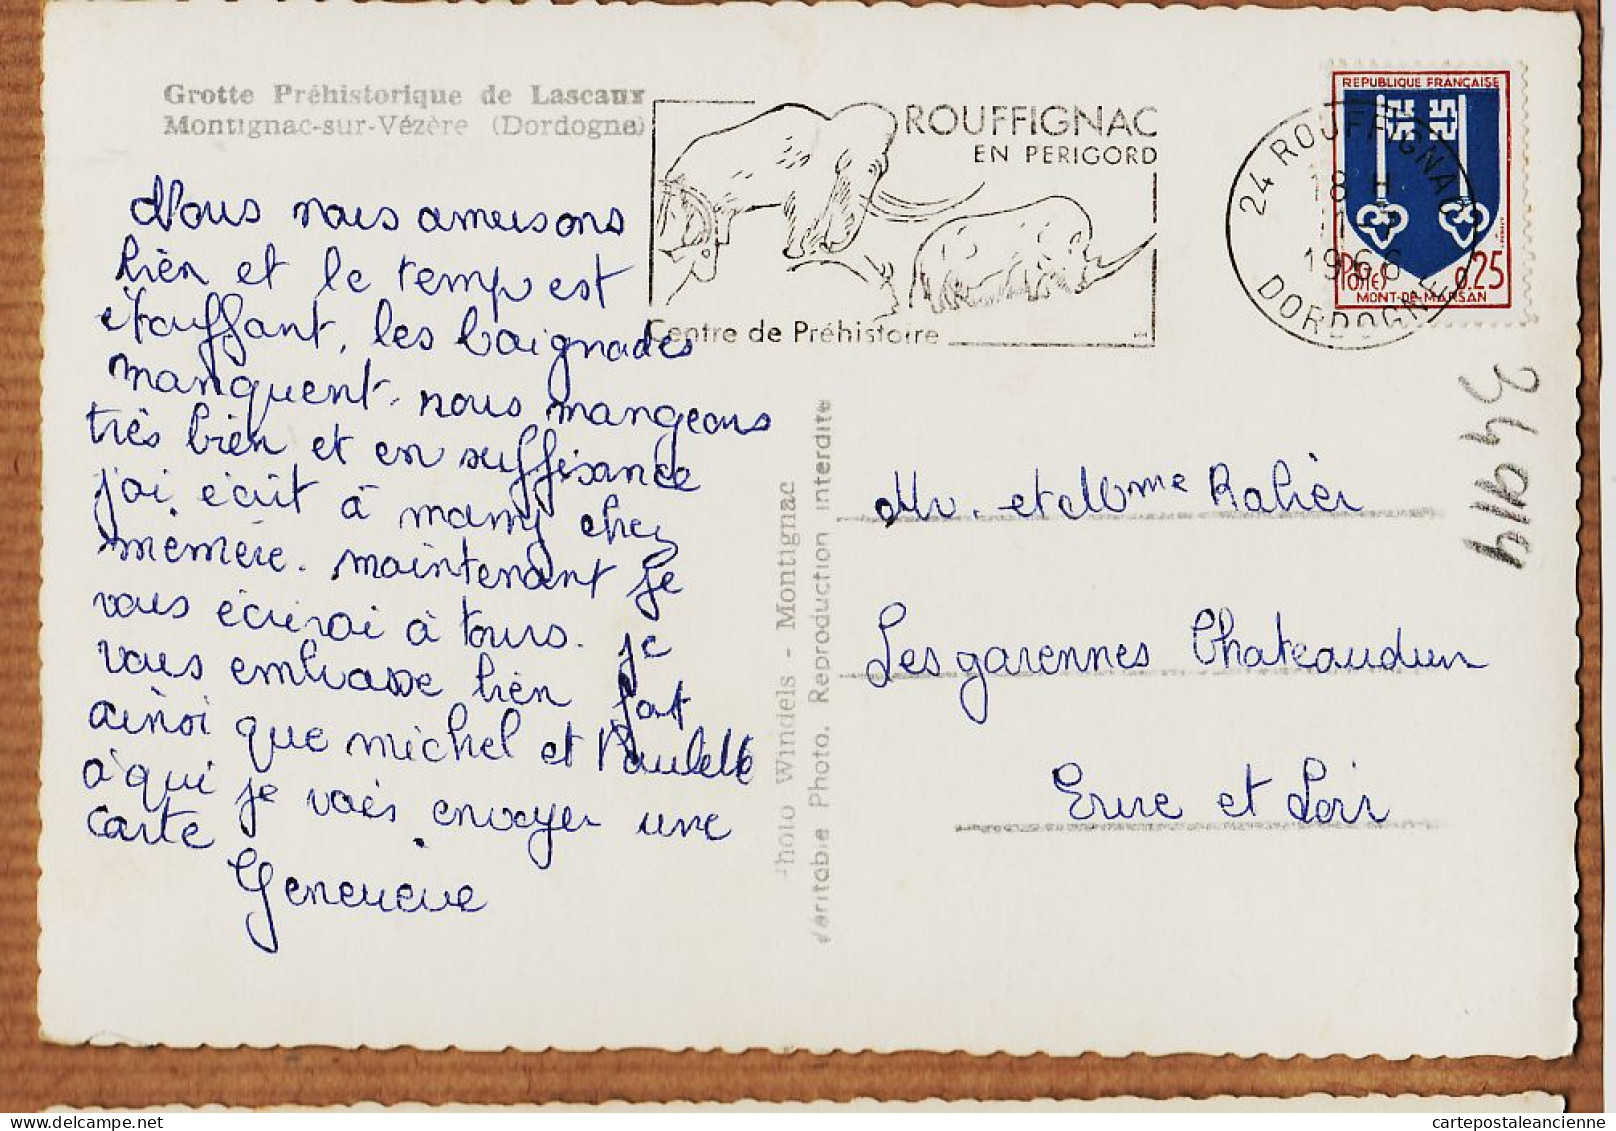 Grotte Préhistorique de Lascaux
Montignac-sur-Vézère (Dordogne)
Nous nous amusons
bien et le temp est
étouffant, les baignades
manquent. nous mangeons
très bien et en suffisance
j'ai écrit à mamy chez
mémère. maintenant je
vous écrirai à tours. je
vous embrasse bien fort
ainsi que michel et Paulette
à qui je vais envoyer une
carte
Geneviève
ROUFFIGNAC
EN PERIGORD
Centre de Préhistoire
24 ROUFFIGNAC
18 H
1966
DORDOGNE
REPUBLIQUE FRANÇAISE
Postes
0,25
MONT-DE-MARSAN
Photo Windels - Montignac
Véritable Photo. Reproduction interdite
Mr. et Mme Rahier
Les garennes Chateaudun
Eure et Loir
cartepostaleancienne